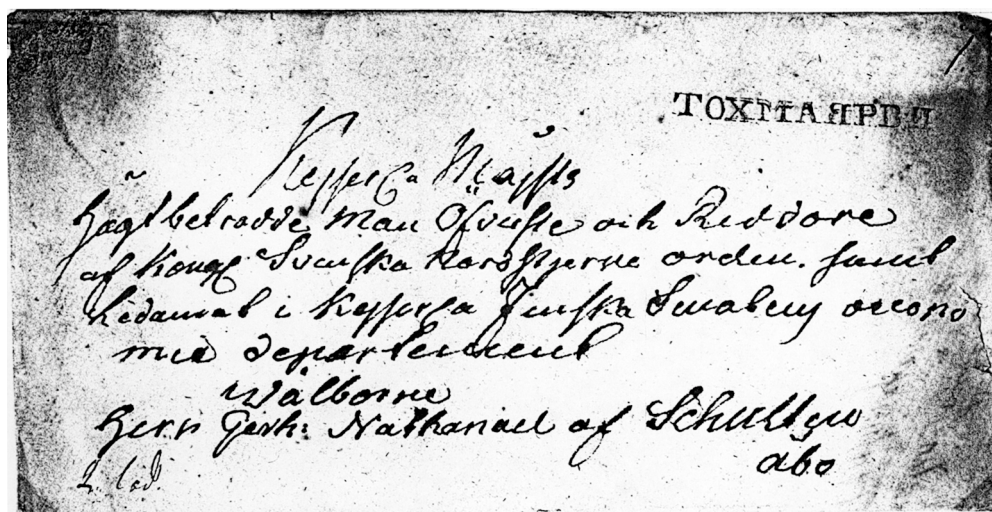 ТОХМАЯРВИ
Keyserl:a Majsts
Högtbetrodde Man Öfverste och Riddare
af Kongl Svenska Nordstjerne orden. samt
Ledamot i Keyserl:a Finska Senatens oecono
mie departement
Wälborne
Herr Gerh: Nathanael af Schulten
abo
2 lod.